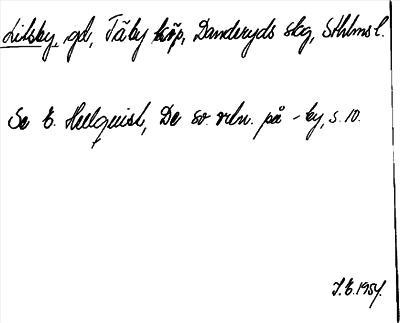 Litsby, gd, Täby köp, Danderyds skg, Sthlms l.
Se E. Hellquist, De sv. nrln. på -by, s. 10.
J.E. 1954.